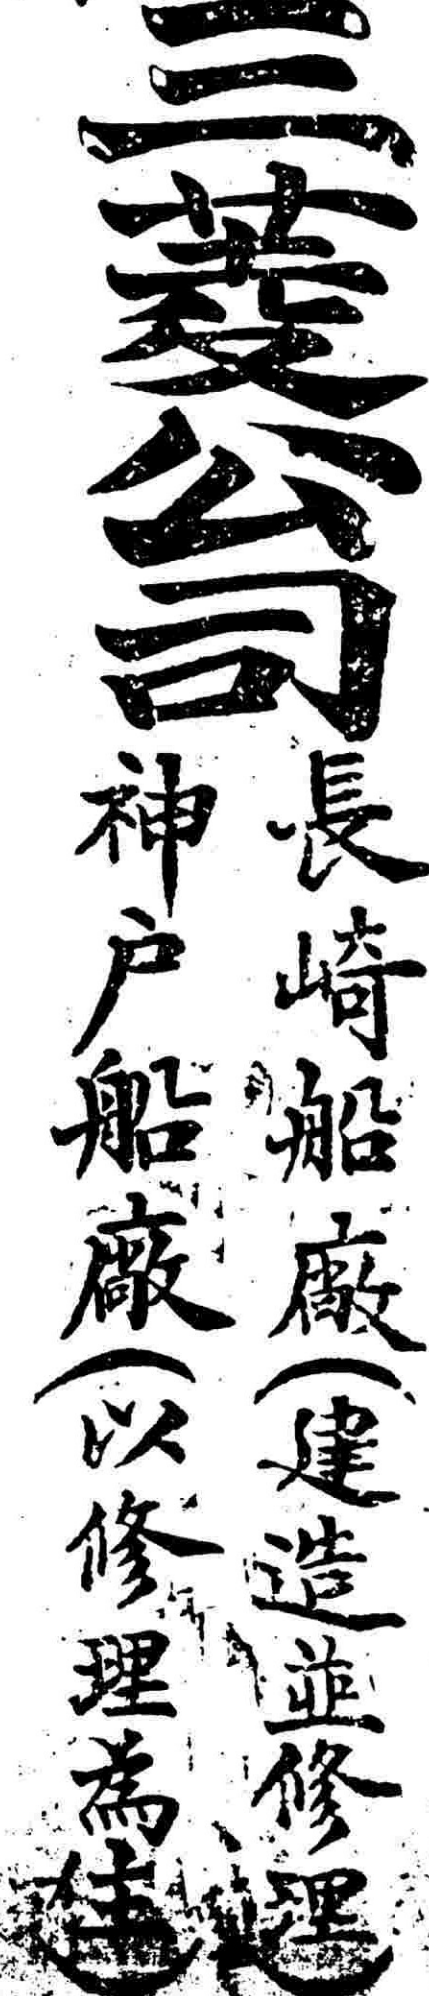 三菱公司
長崎船廠(建造並修理)
神戶船廠(以修理為主)